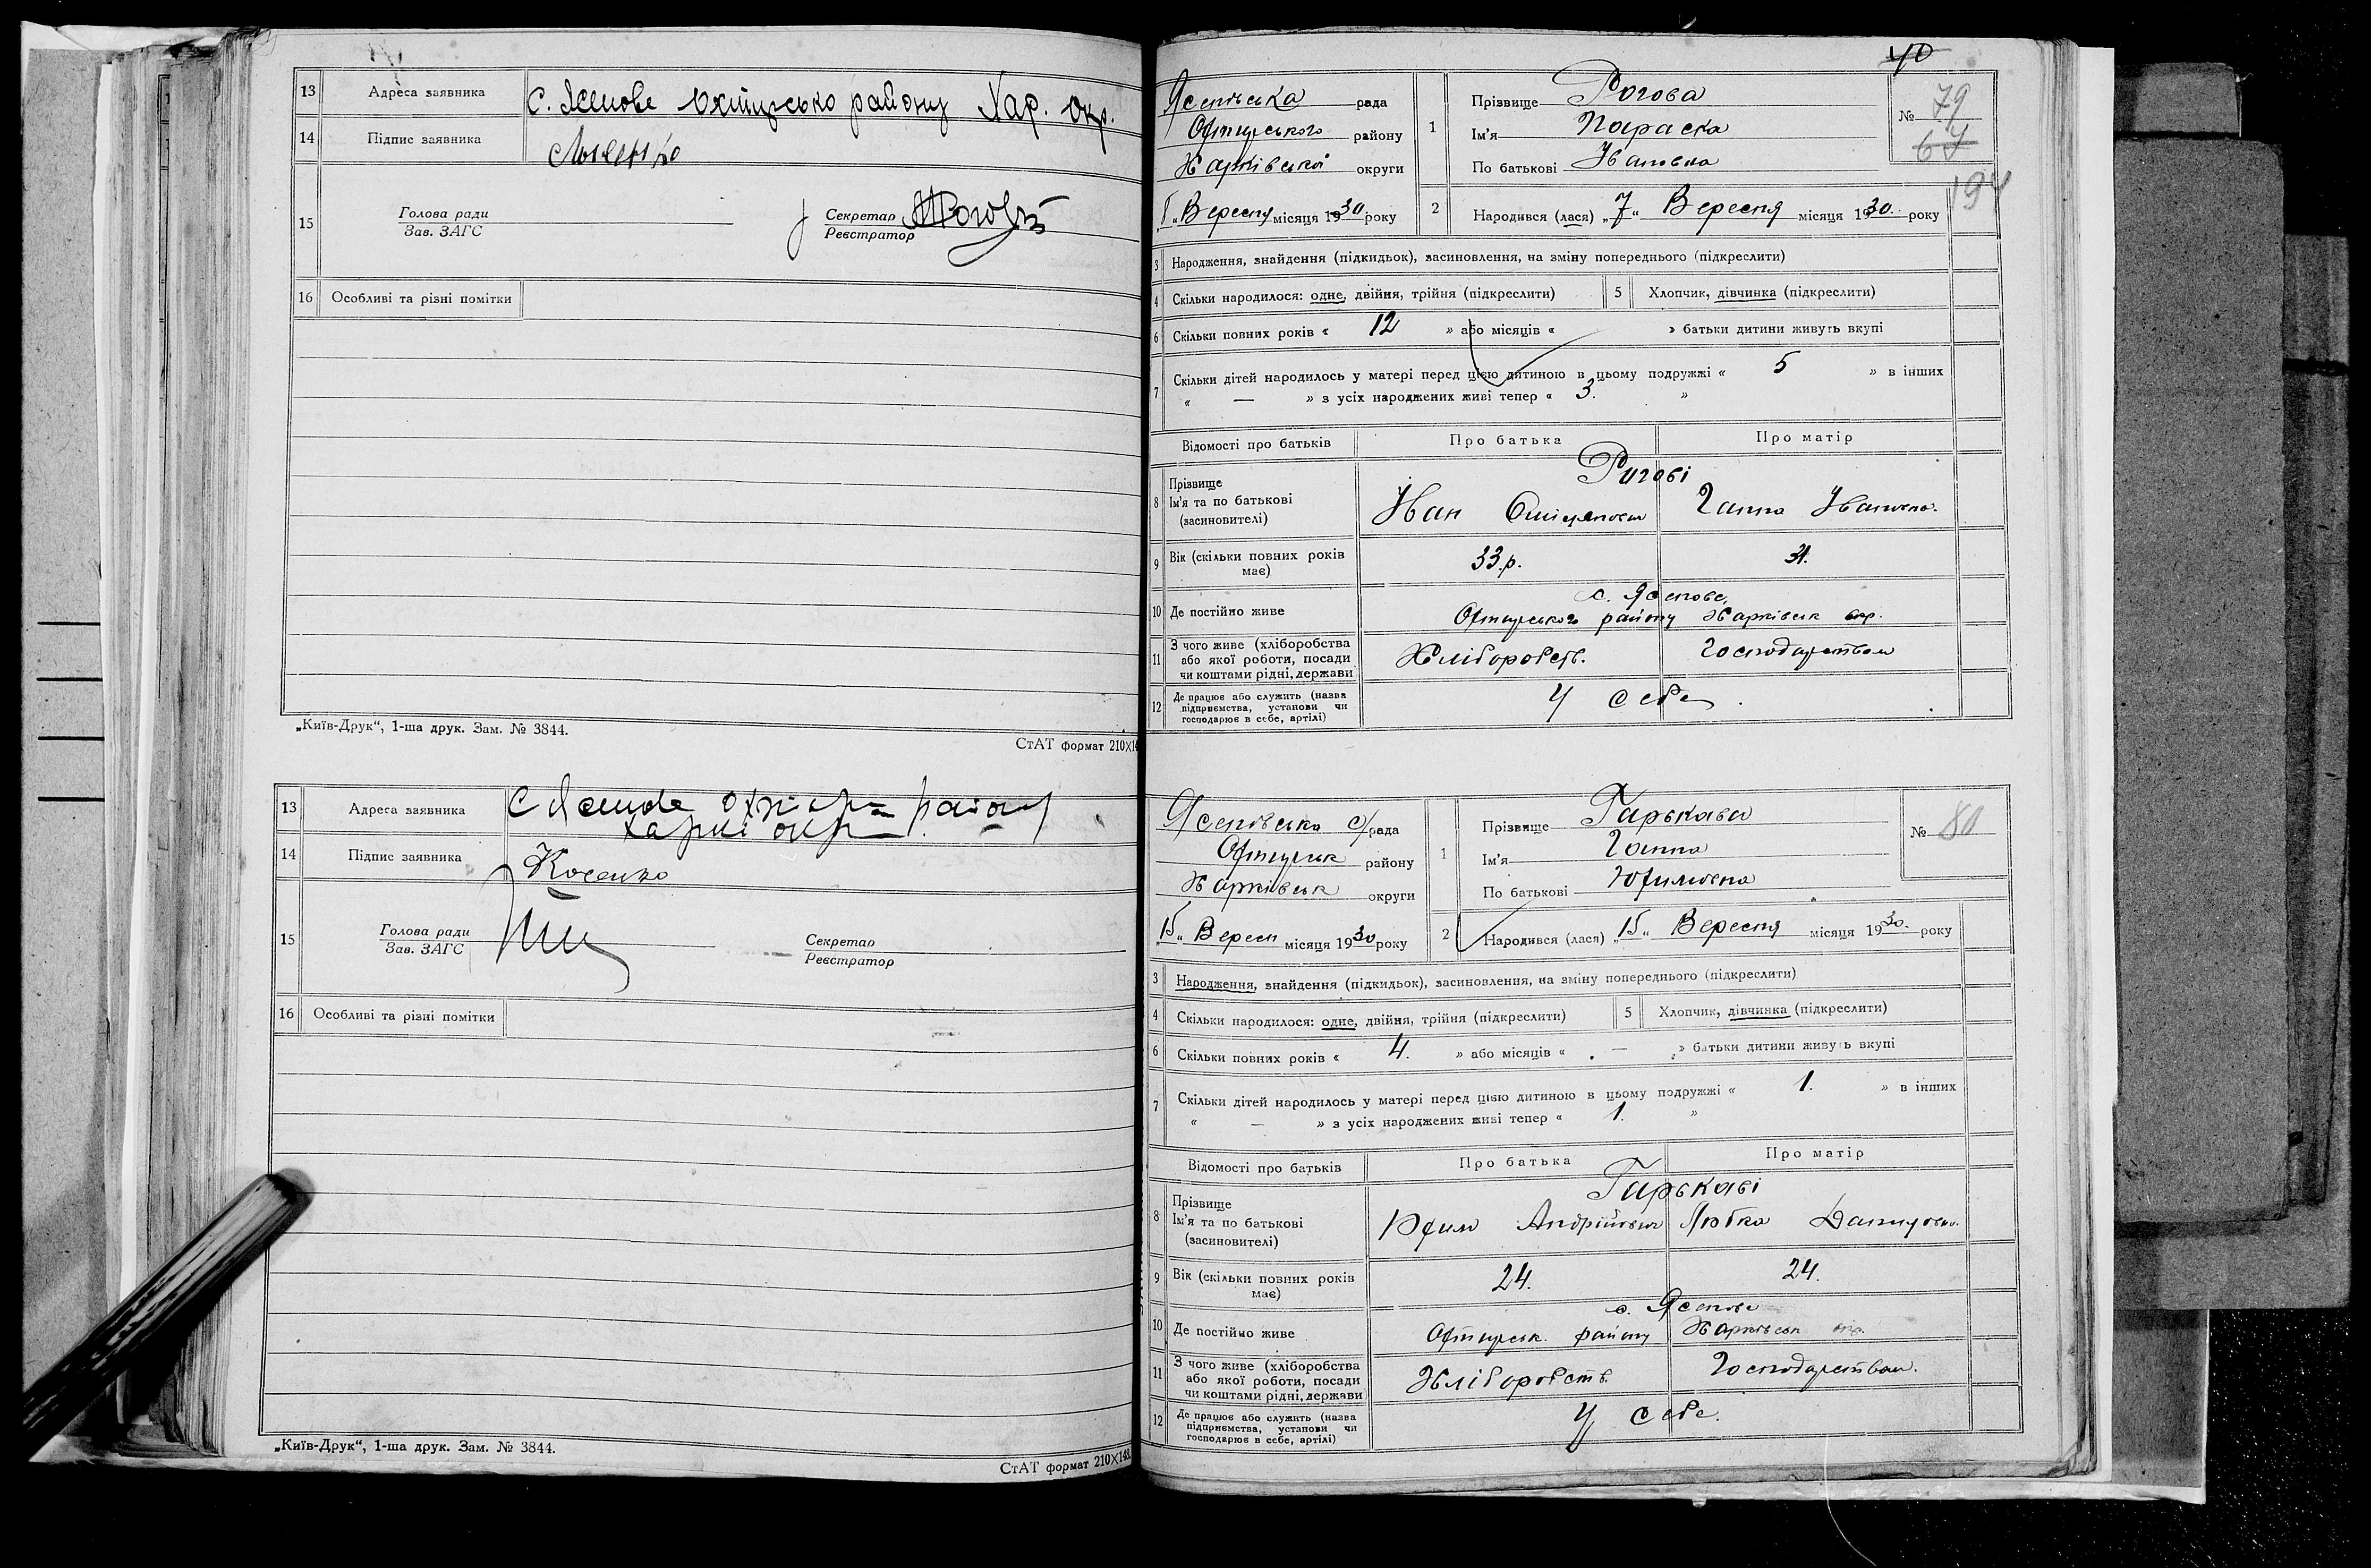 13 Адреса заявника С. Ясенове Охтирсько району Хар. Окр.
14 Підпис заявника
15 Голова ради
Зав. ЗАГС
Секретар
Реєстратор
16 Особливі та різні помітки
„Київ-Друк“, 1-ша друк. Зам. № 3844.
СтАТ формат 210×14
13 Адреса заявника С Ясенове
14 Підпис заявника Косенко
15 Голова ради
Зав. ЗАГС
Секретар
Реєстратор
16 Особливі та різні помітки
„Київ-Друк“, 1-ша друк. Зам. № 3844.
СтАТ формат 210×148
40
Ясенівська рада
Охтирського району
Харківської округи
Вересня місяця 1930 року
1 Прізвище Рогова
Ім'я Параска
По батькові Івановна
№ 79
67
194
2 Народився (лася) „7“ Вересня місяця 1930. року
3 Народження, знайдення (підкидьок), засиновлення, на зміну попереднього (підкреслити)
4 Скільки народилося: одне, двійня, трійня (підкреслити) 5 Хлопчик, дівчинка (підкреслити)
6 Скільки повних років « 12 » або місяців « » батьки дитини живуть вкупі
7 Скільки дітей народилось у матері перед цією дитиною в цьому подружжі « 5 » в інших
« — » з усіх народжених живі тепер « 3. »
Відомості про батьків Про батька Про матір
8 Прізвище Рогові
Ім'я та по батькові
(засиновителі)
Іван Ганна Івановна.
9 Вік (скільки повних років має) 33 р. 31.
10 Де постійно живе с. Ясенове,
Охтирського району Харківськ окр.
11 З чого живе (хліборобства
або якої роботи, посади
чи коштами рідні, держави
Хліборобств. Господарством
12 Де працює або служить (назва
підприємства, установи чи
господарює в себе, артілі)
У себе.
Ясенівська с/рада
Охтирськ району
Харківськ округи
„15“ Вересн місяця 1930 року
1 Прізвище Гарькава
Ім'я Ганна
По батькові Юхимовна
№ 80
2 Народився (лася) „15“ Вересня місяця 1930. року
3 Народження, знайдення (підкидьок), засиновлення, на зміну попереднього (підкреслити)
4 Скільки народилося: одне, двійня, трійня (підкреслити) 5 Хлопчик, дівчинка (підкреслити)
6 Скільки повних років « 4. » або місяців « — » батьки дитини живуть вкупі
7 Скільки дітей народилось у матері перед цією дитиною в цьому подружжі « 1. » в інших
« — » з усіх народжених живі тепер « 1. »
Відомості про батьків Про батька Про матір
8 Прізвище Гарькаві
Ім'я та по батькові
(засиновителі)
Юхим Андрійович Любка Даниловн.
9 Вік (скільки повних років має) 24. 24.
10 Де постійно живе с. Ясенове
Охтирськ. району Харківськ окр.
11 З чого живе (хліборобства
або якої роботи, посади
чи коштами рідні, держави
Хліборобств. Господарством.
12 Де працює або служить (назва
підприємства, установи чи
господарює в себе, артілі)
У себе.